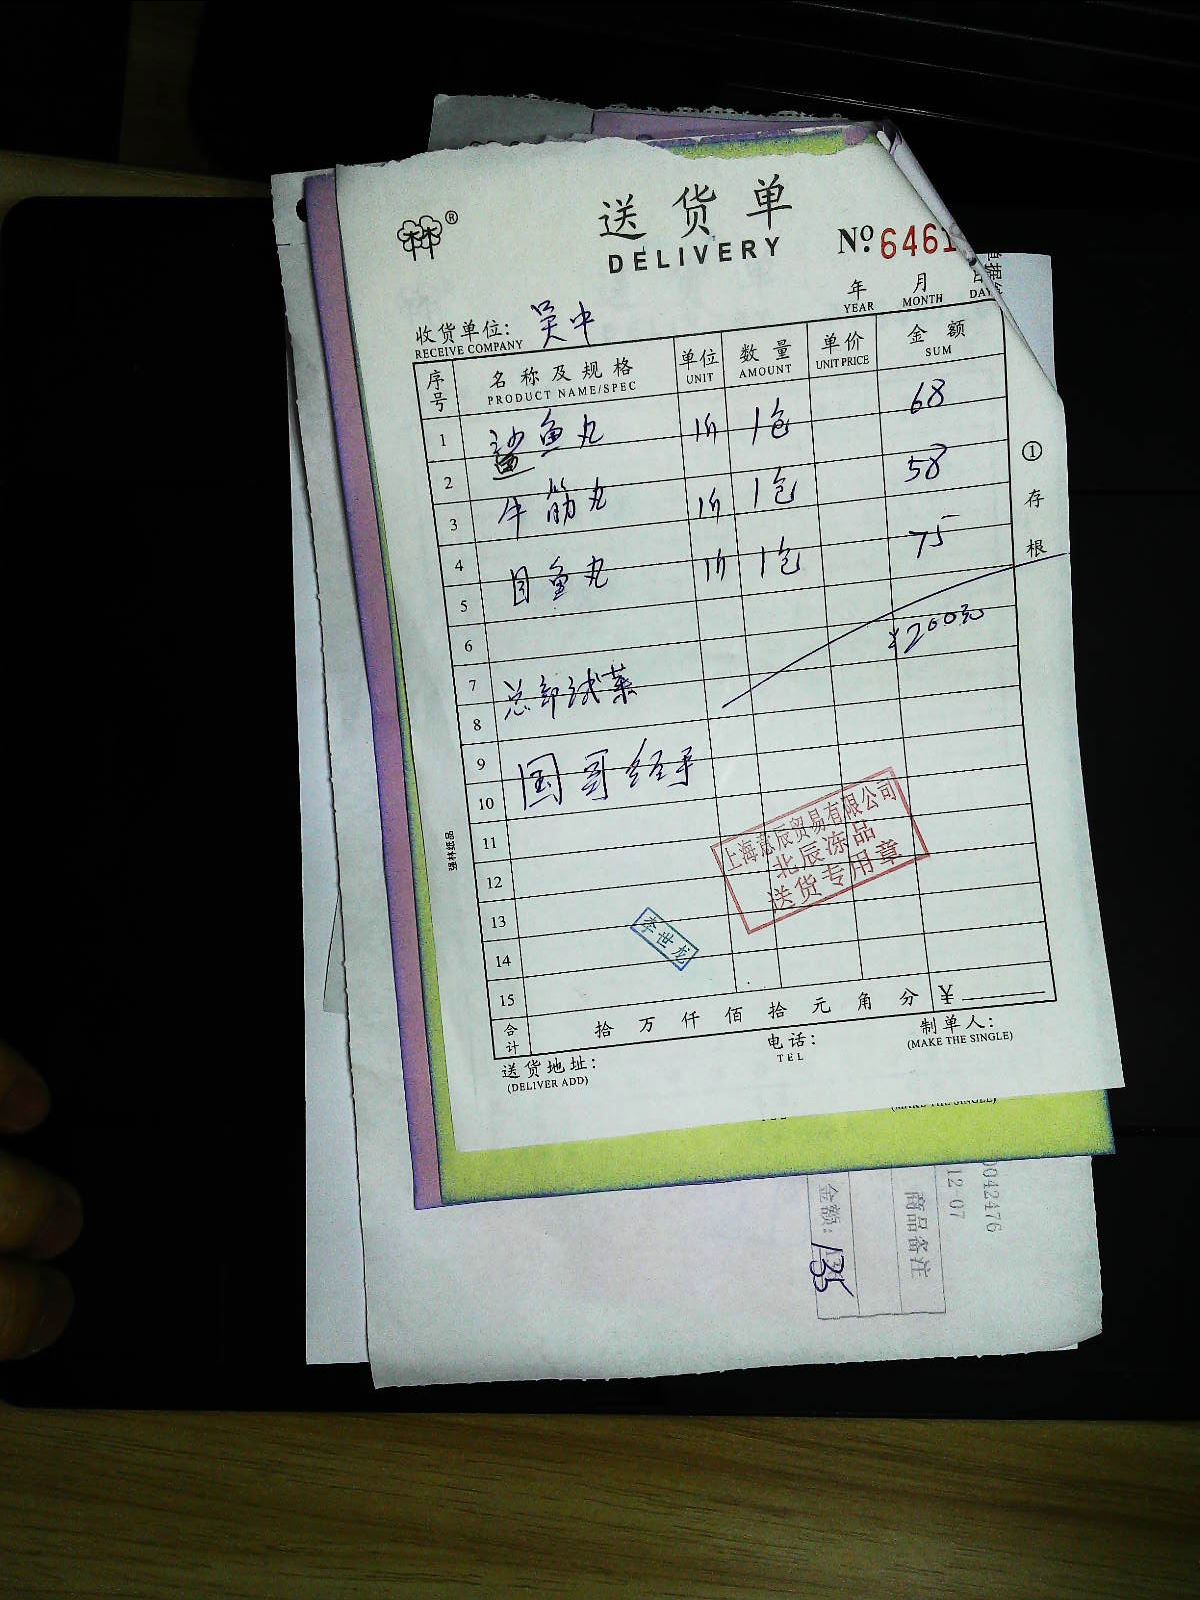 送货单
DELIVERY
№ 6461
年 月 日
YEAR MONTH DAY
收货单位: 吴中
RECEIVE COMPANY
序号 名称及规格 单位 数量 单价 金额
PRODUCT NAME/SPEC UNIT AMOUNT UNIT PRICE SUM
1 鲨鱼丸 1包 68
2
3 牛筋丸 1包 58
4
5 目鱼丸 1包 75
6
7 ¥200元
8 总部试菜
9
10 国哥经手
11
12
13
14
15
合计 拾 万 仟 佰 拾 元 角 分 ¥
送货地址: 电话: 制单人:
(DELIVER ADD) TEL (MAKE THE SINGLE)
①存根
强林纸品
上海意辰贸易有限公司
北辰冻品
送货专用章
李世龙
(MAKE THE SINGLE)
0042476
12-07
商品备注
金额: 135